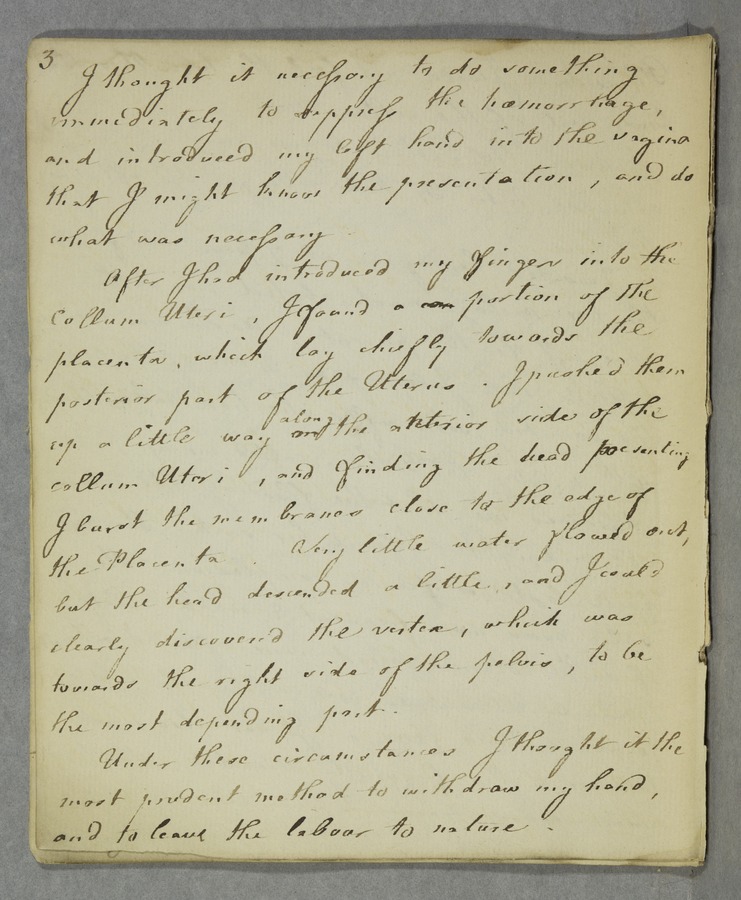 3
I thought it necessary to do something
immediately to suppress the hæmorrhage,
and introduced my left hand into the vagina
that I might know the presentation, and do
what was necessary.
After I had introduced my finger into the
Collum Uteri, I found a portion of the
placenta, which lay chiefly towards the
posterior part of the Uterus. I pushed them
up a little way along the anterior side of the
collum Uteri, and finding the head presenting
I burst the membranes close to the edge of
the Placenta. Very little water flowed out,
but the head descended a little, and I could
clearly discovered the vertex, which was
towards the right side of the pelvis, to be
the most depending part.
Under these circumstances I thought it the
most prudent method to withdraw my hand,
and to leave the labour to nature.